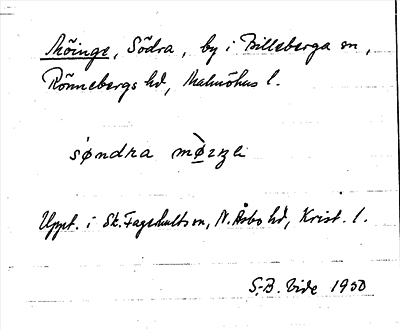 Möinge, Södra, by i Billeberga sn,
Rönnebergs hd, Malmöhus l.
søndra
Uppt. i Sk. Fagerhults sn, N. Åsbo hd, Krist. l.
S.-B. Vide 1950